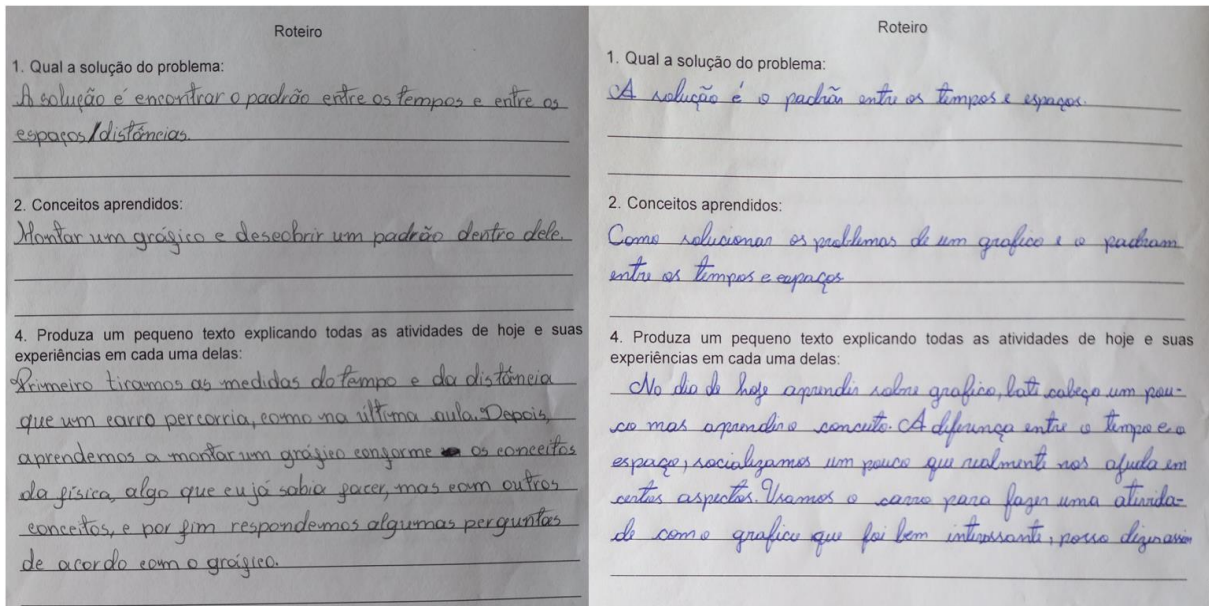 Roteiro
1. Qual a solução do problema:
A solução é encontrar o padrão entre os tempos e entre os
espaços/distâncias.
2. Conceitos aprendidos:
Montar um gráfico e descobrir um padrão dentro dele.
4. Produza um pequeno texto explicando todas as atividades de hoje e suas
experiências em cada uma delas:
Primeiro tiramos as medidas do tempo e da distância
que um carro percorria, como na última aula. Depois,
aprendemos a montar um gráfico conforme os conceitos
da física, algo que eu já sabia fazer, mas com outros
conceitos, e por fim respondemos algumas perguntas
de acordo com o gráfico.
Roteiro
1. Qual a solução do problema:
A solução é o padrão entre os tempos e espaços.
2. Conceitos aprendidos:
Como solucionar os problemas de um grafico e o padram
entre os tempos e espaços
4. Produza um pequeno texto explicando todas as atividades de hoje e suas
experiências em cada uma delas:
No dia de hoje aprendir sobre grafico, bati cabeça um pou-
co mas aprendir o conceito. A diferença entre o tempo e o
espaço, socializamos um pouco que realmente nos ajuda em
certos aspectos. Usamos o carro para fazer uma ativida-
de com o grafico que foi bem interessante, posso dizer assim